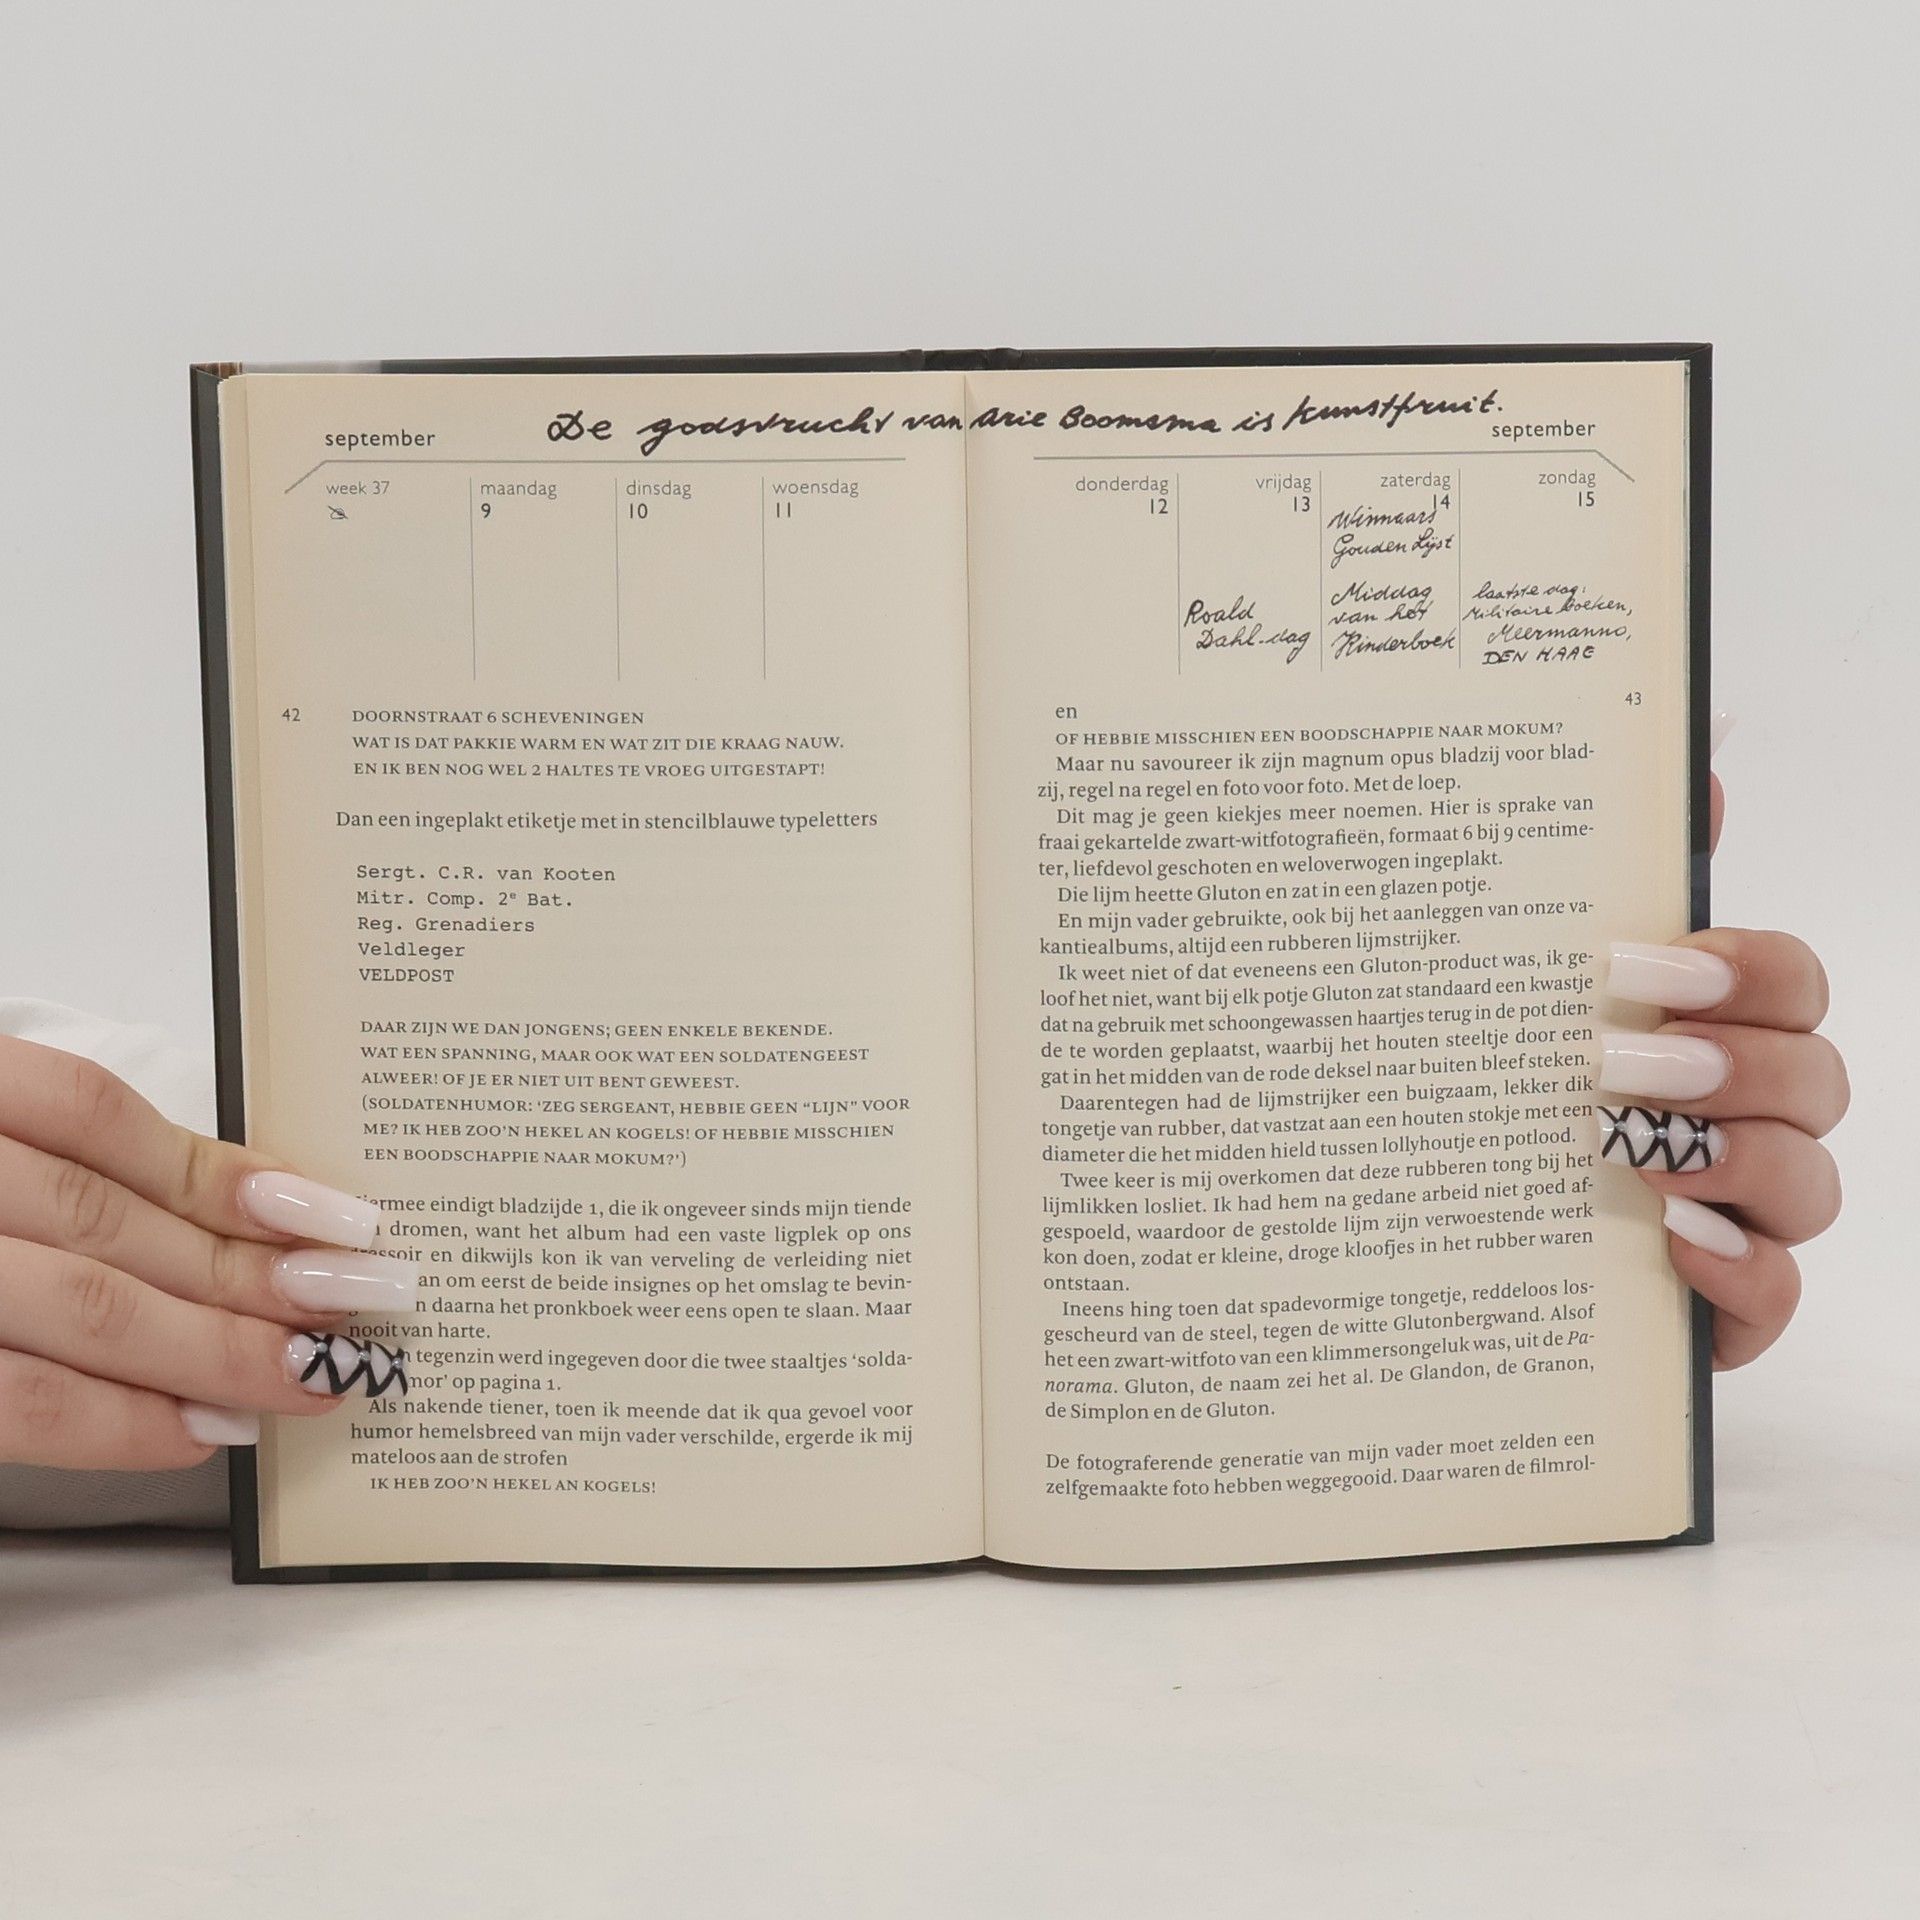 De godsvrucht van Arie Boomsma is kunstfruit.
september
week 37
maandag
9
dinsdag
10
woensdag
11
42
DOORNSTRAAT 6 SCHEVENINGEN
WAT IS DAT PAKKIE WARM EN WAT ZIT DIE KRAAG NAUW.
EN IK BEN NOG WEL 2 HALTES TE VROEG UITGESTAPT!
Dan een ingeplakt etiketje met in stencilblauwe typeletters
Sergt. C.R. van Kooten
Mitr. Comp. 2e Bat.
Reg. Grenadiers
Veldleger
VELDPOST
DAAR ZIJN WE DAN JONGENS; GEEN ENKELE BEKENDE.
WAT EEN SPANNING, MAAR OOK WAT EEN SOLDATENGEEST
ALWEER! OF JE ER NIET UIT BENT GEWEEST.
(SOLDATENHUMOR: ‘ZEG SERGEANT, HEBBIE GEEN “LIJN” VOOR
ME? IK HEB ZOO’N HEKEL AN KOGELS! OF HEBBIE MISSCHIEN
EEN BOODSCHAPPIE NAAR MOKUM?’)
eindigt bladzijde 1, die ik ongeveer sinds mijn tiende
dromen, want het album had een vaste ligplek op ons
en dikwijls kon ik van verveling de verleiding niet
om eerst de beide insignes op het omslag te bevin-
daarna het pronkboek weer eens open te slaan. Maar
nooit van harte.
tegenzin werd ingegeven door die twee staaltjes ‘solda-
mor’ op pagina 1.
Als nakende tiener, toen ik meende dat ik qua gevoel voor
humor hemelsbreed van mijn vader verschilde, ergerde ik mij
mateloos aan de strofen
IK HEB ZOO’N HEKEL AN KOGELS!
september
donderdag
12
vrijdag
13
Roald
Dahl-dag
zaterdag
14
Winnaars
Gouden Lijst
Middag
van het
Kinderboek
zondag
15
laatste dag:
Militaire boeken,
Meermanno,
DEN HAAG
43
en
OF HEBBIE MISSCHIEN EEN BOODSCHAPPIE NAAR MOKUM?
Maar nu savoureer ik zijn magnum opus bladzij voor blad-
zij, regel na regel en foto voor foto. Met de loep.
Dit mag je geen kiekjes meer noemen. Hier is sprake van
fraai gekartelde zwart-witfotografieën, formaat 6 bij 9 centime-
ter, liefdevol geschoten en weloverwogen ingeplakt.
Die lijm heette Gluton en zat in een glazen potje.
En mijn vader gebruikte, ook bij het aanleggen van onze va-
kantiealbums, altijd een rubberen lijmstrijker.
Ik weet niet of dat eveneens een Gluton-product was, ik ge-
loof het niet, want bij elk potje Gluton zat standaard een kwastje
dat na gebruik met schoongewassen haartjes terug in de pot dien-
de te worden geplaatst, waarbij het houten steeltje door een
gat in het midden van de rode deksel naar buiten bleef steken.
Daarentegen had de lijmstrijker een buigzaam, lekker dik
tongetje van rubber, dat vastzat aan een houten stokje met een
diameter die het midden hield tussen lollyhoutje en potlood.
Twee keer is mij overkomen dat deze rubberen tong bij het
lijmlikken losliet. Ik had hem na gedane arbeid niet goed af-
gespoeld, waardoor de gestolde lijm zijn verwoestende werk
kon doen, zodat er kleine, droge kloofjes in het rubber waren
ontstaan.
Ineens hing toen dat spadevormige tongetje, reddeloos los-
gescheurd van de steel, tegen de witte Glutonbergwand. Alsof
het een zwart-witfoto van een klimmersongeluk was, uit de Pa-
norama. Gluton, de naam zei het al. De Glandon, de Granon,
de Simplon en de Gluton.
De fotograferende generatie van mijn vader moet zelden een
zelfgemaakte foto hebben weggegooid. Daar waren de filmrol-